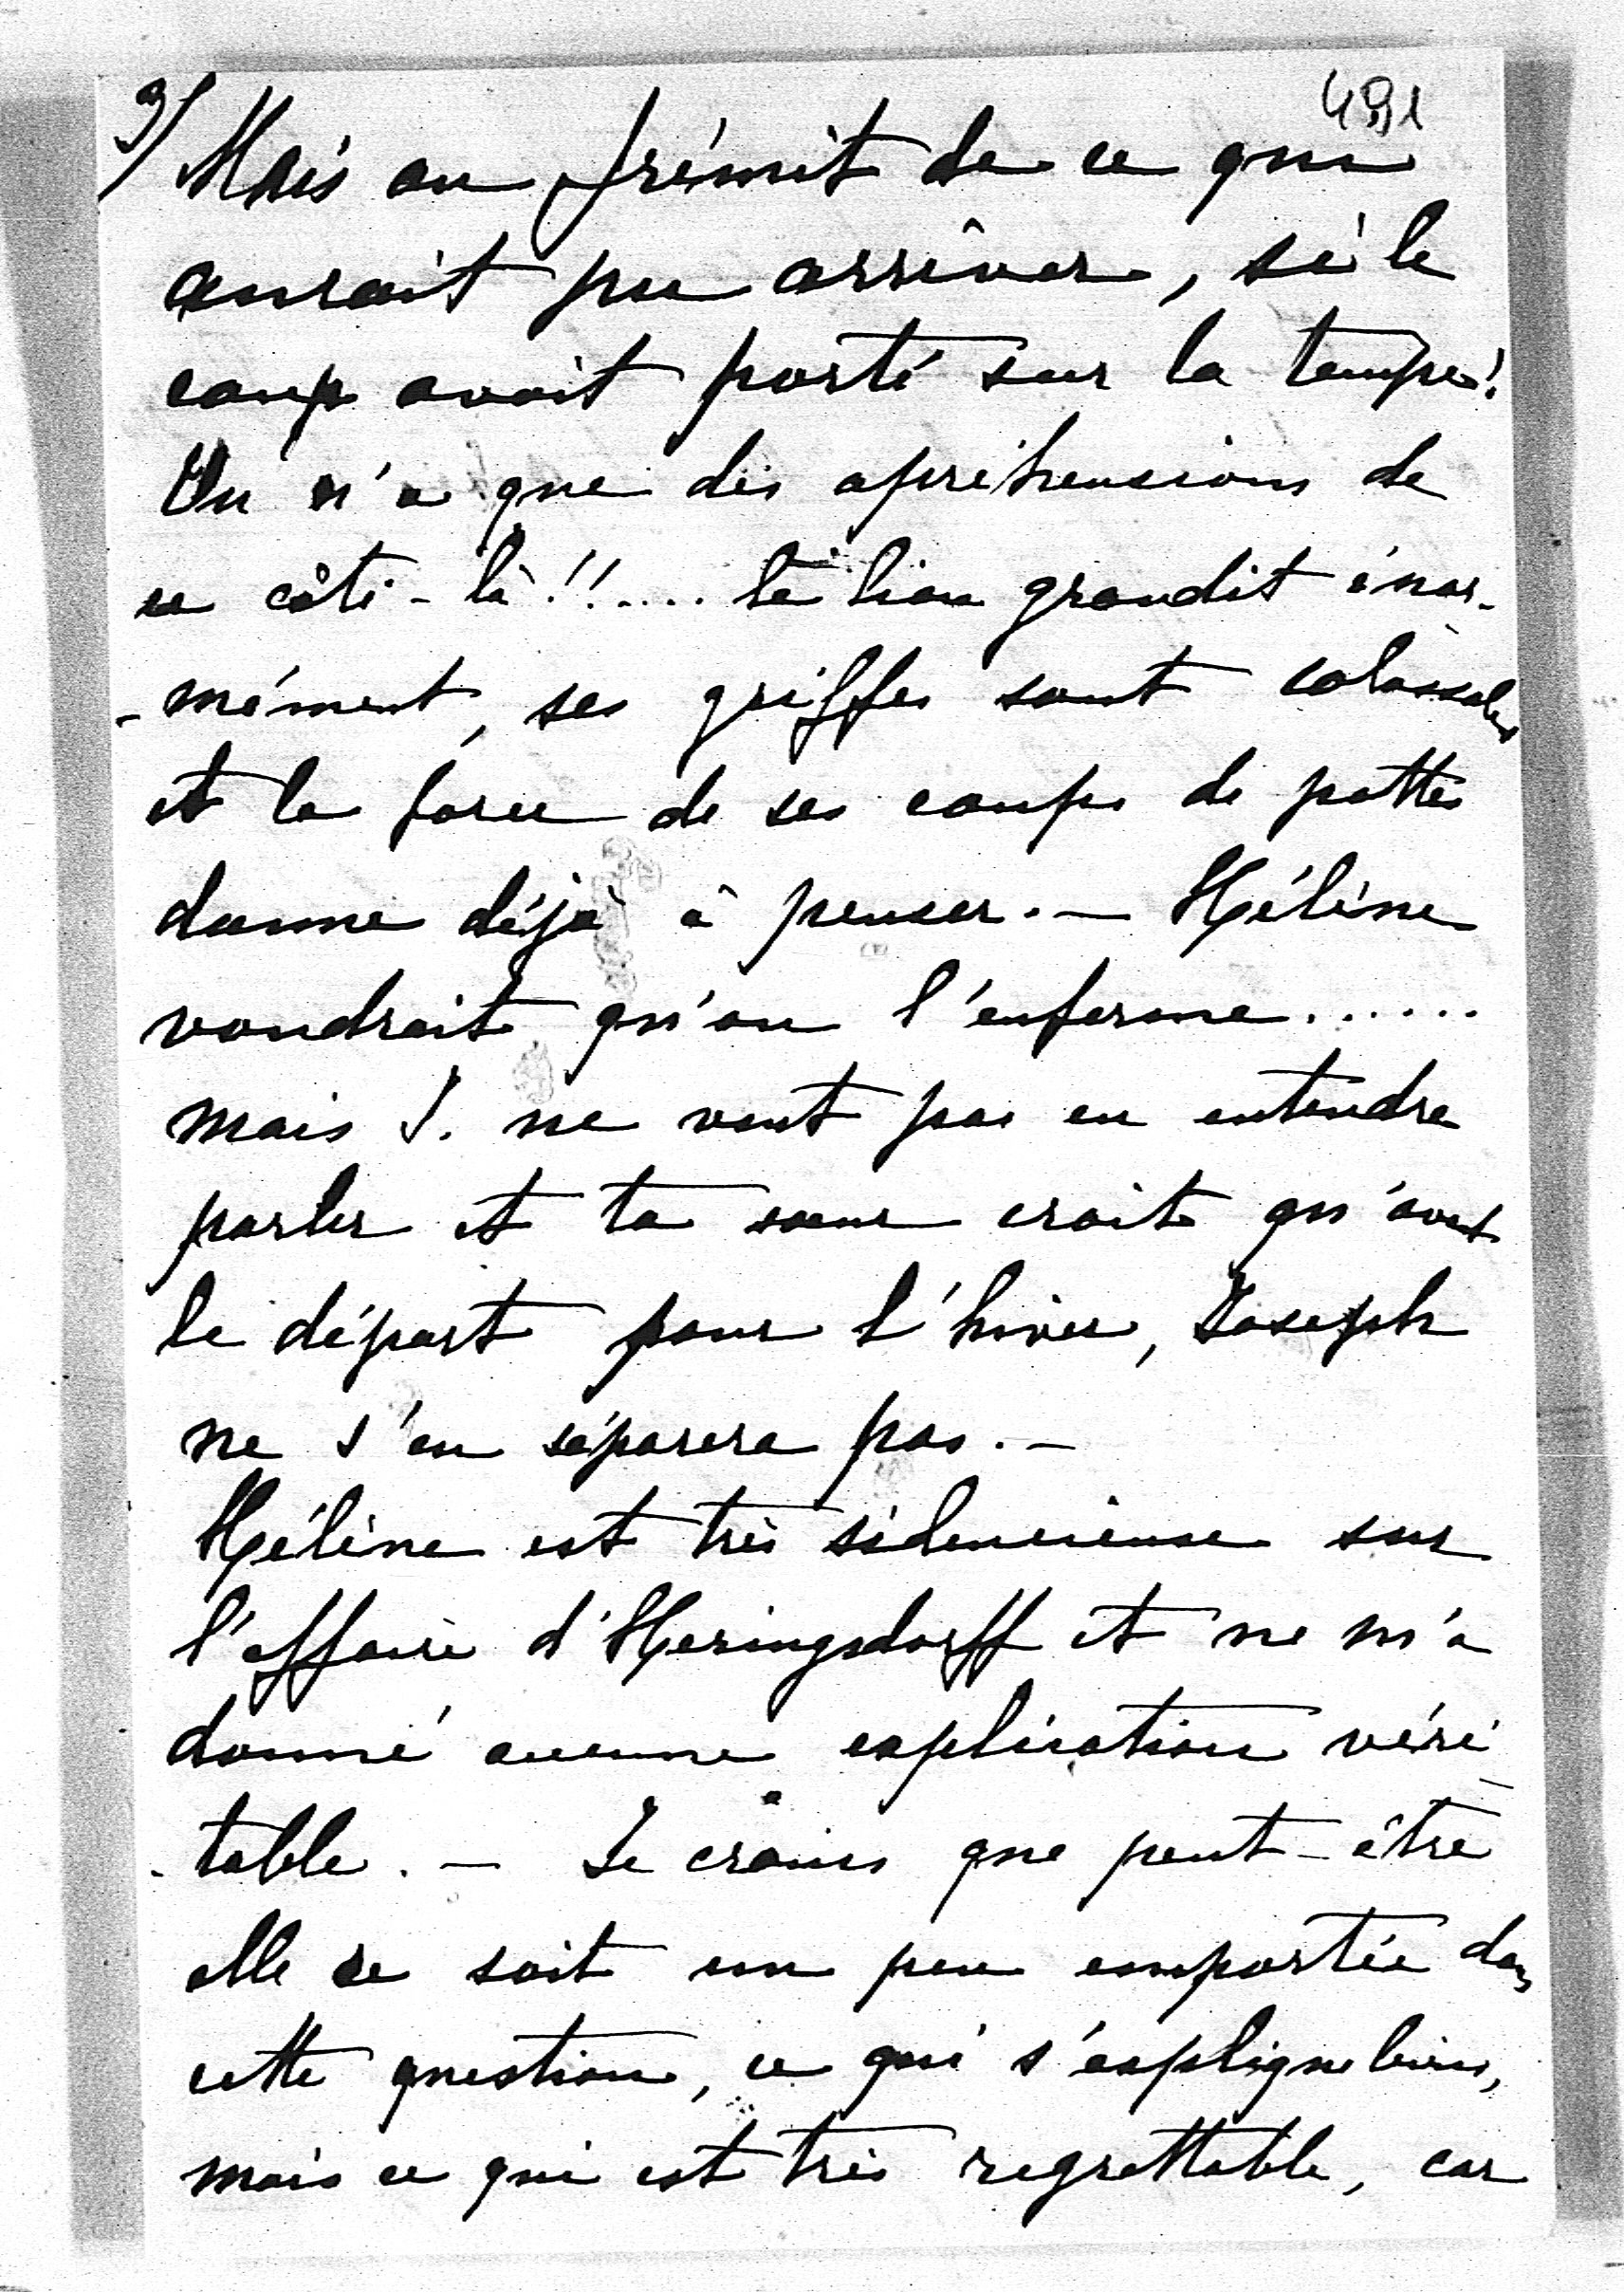 3/ 491
Mais on frémit de ce qui
aurait pu arriver, si le
coup avait porté sur la tempe!
On n'a que des apréhensions de
ce côté-là!!..... le lion grandit énor-
-mément, ses griffes sont colossales
et la force de ses coups de pattes
donne déjà à penser.— Hélène
voudrait qu'on l'enferme......
mais J. ne veut pas en entendre
parler et ta sœur croit qu'avant
le départ pour l'hiver, Joseph
ne s'en séparera pas.—
Hélène est très silencieuse sur
l'affaire d'Heringsdorff et ne m'a
donné aucune explication véri-
-table.— Je crains que peut-être
elle se soit un peu emportée dans
cette question, ce qui s'explique bien,
mais ce qui est très regrettable, car